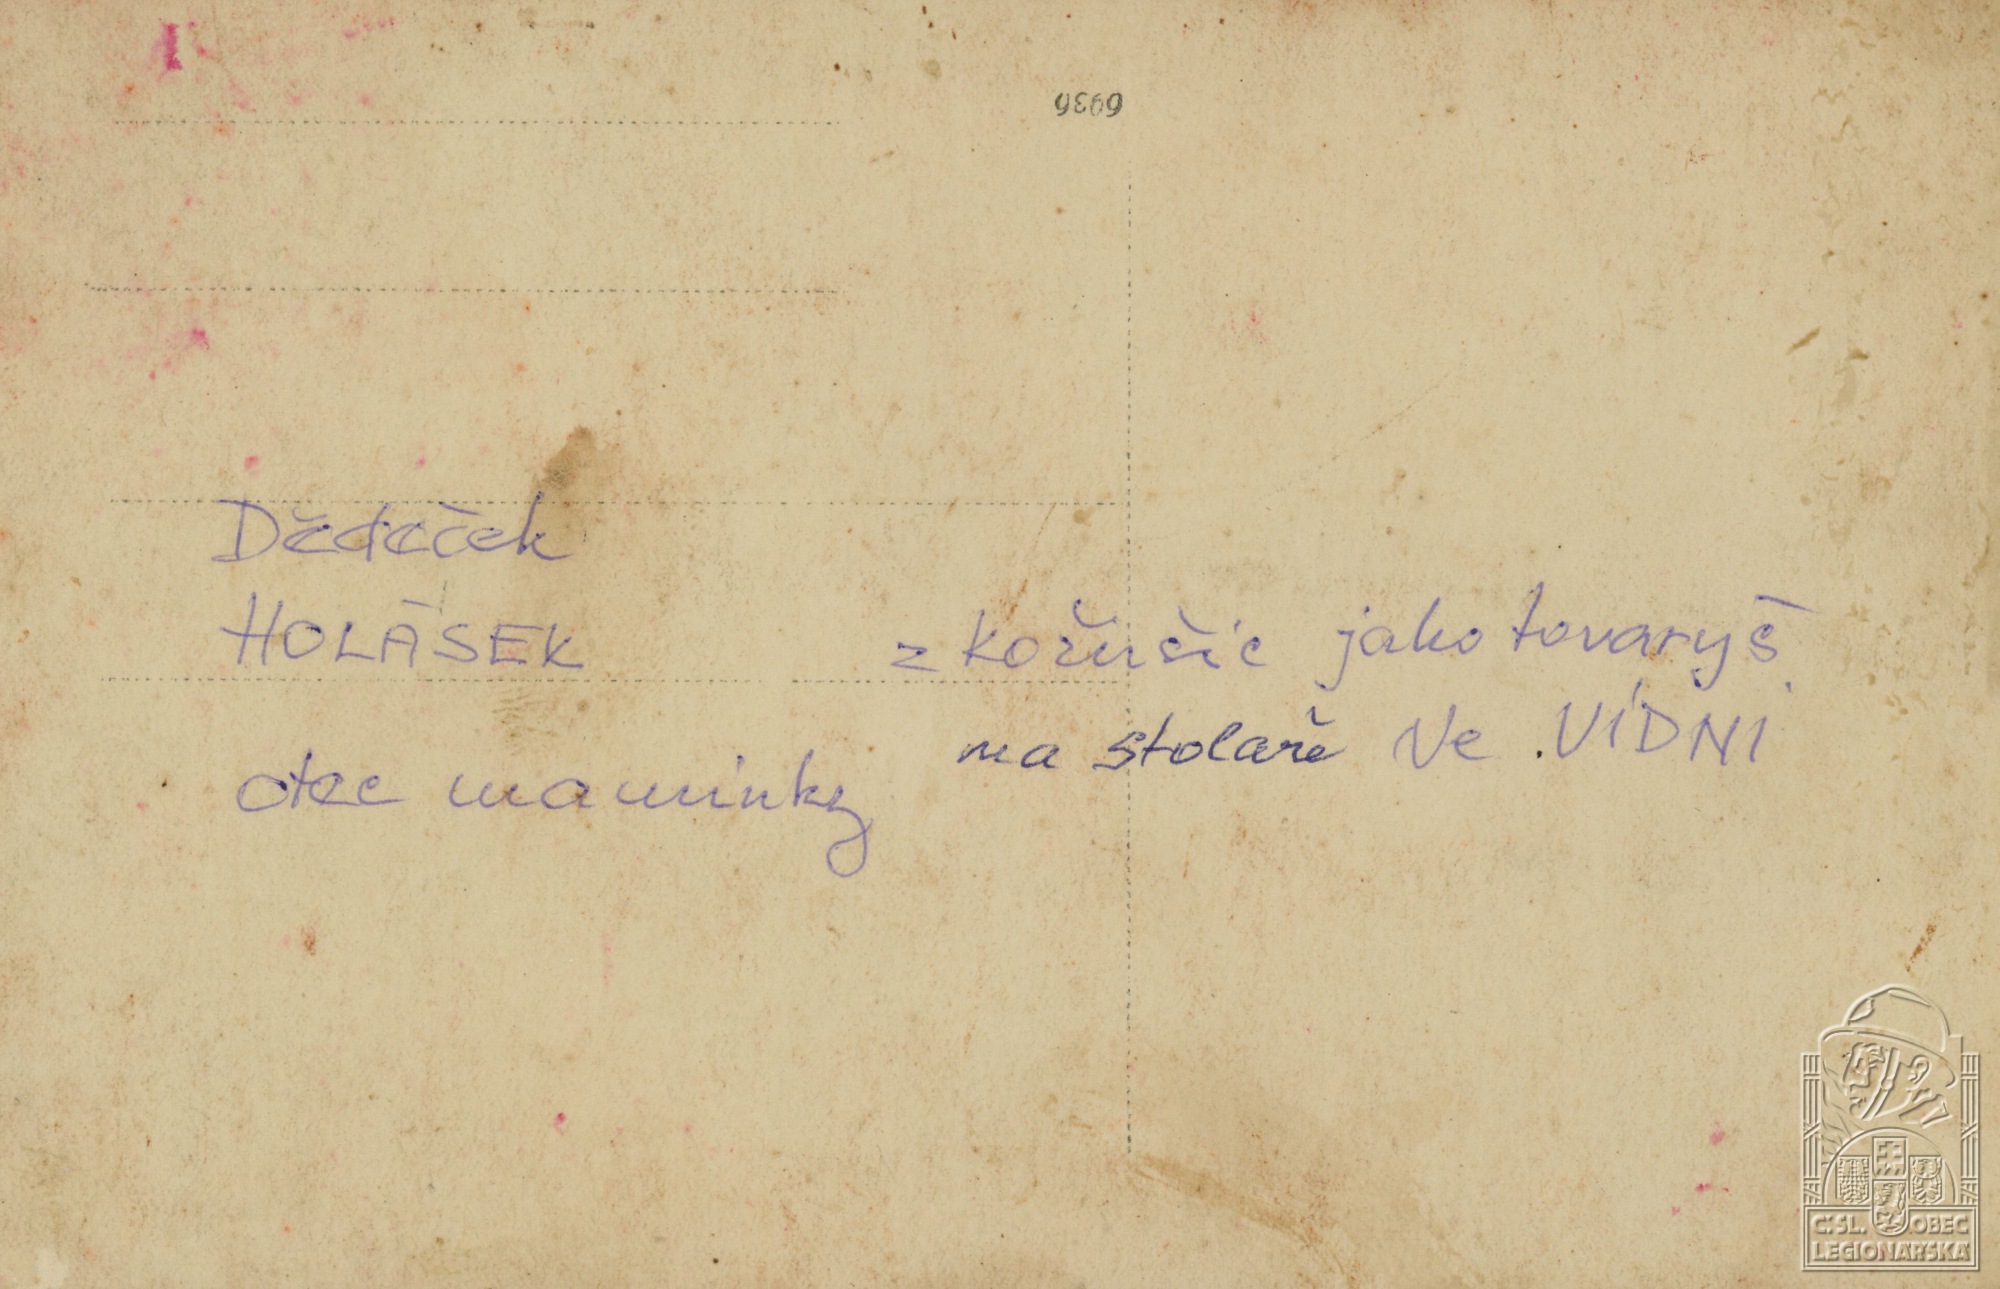 6936
Dědeček
HOLÁSEK z Kožušic jako tovaryš
otec maminky na stolaře Ve VÍDNI
Č.SL. OBEC
LEGIONÁŘSKÁ